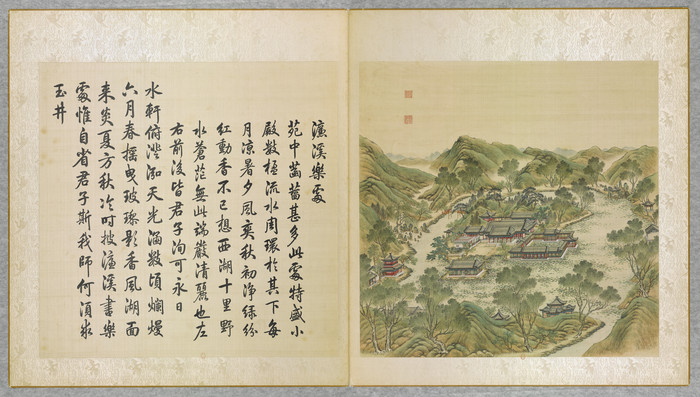 濂溪樂處
苑中菡萏甚多此處特盛小
殿數楹流水周環於其下每
月凉暑夕風爽秋初淨綠紛
紅動香不已想西湖十里野
水蒼茫無此端嚴清麗也左
右前後皆君子洵可永日
水軒俯澄泓天光涵數頃爛熳
六月春搖曳玻瓈影香風湖面
來炎夏方秋冷時披濂溪書樂
處惟自省君子斯我師何須求
玉井